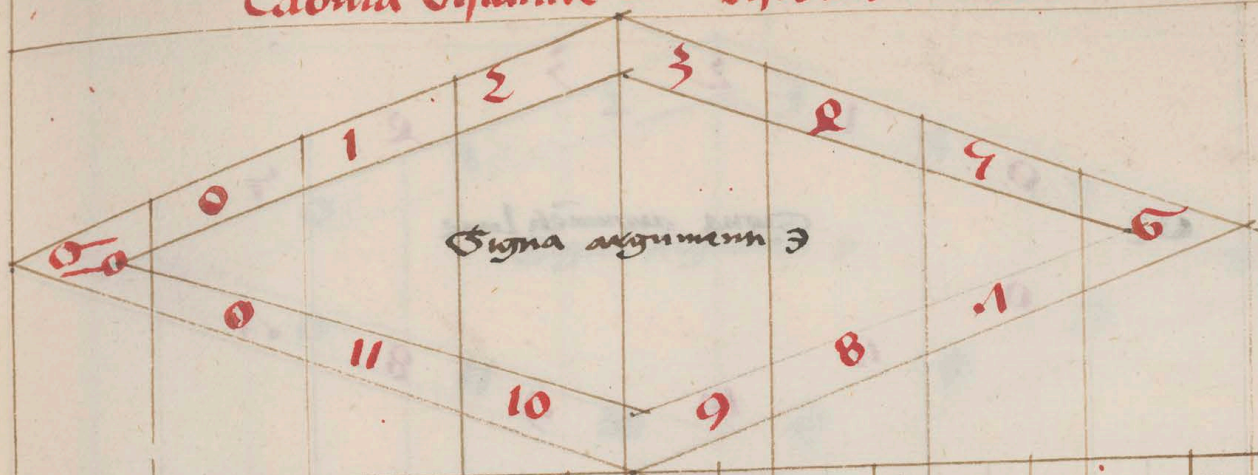 0 1 2 3 4 5
6
Signa argumenti ☽
0 11 10 9 8 7